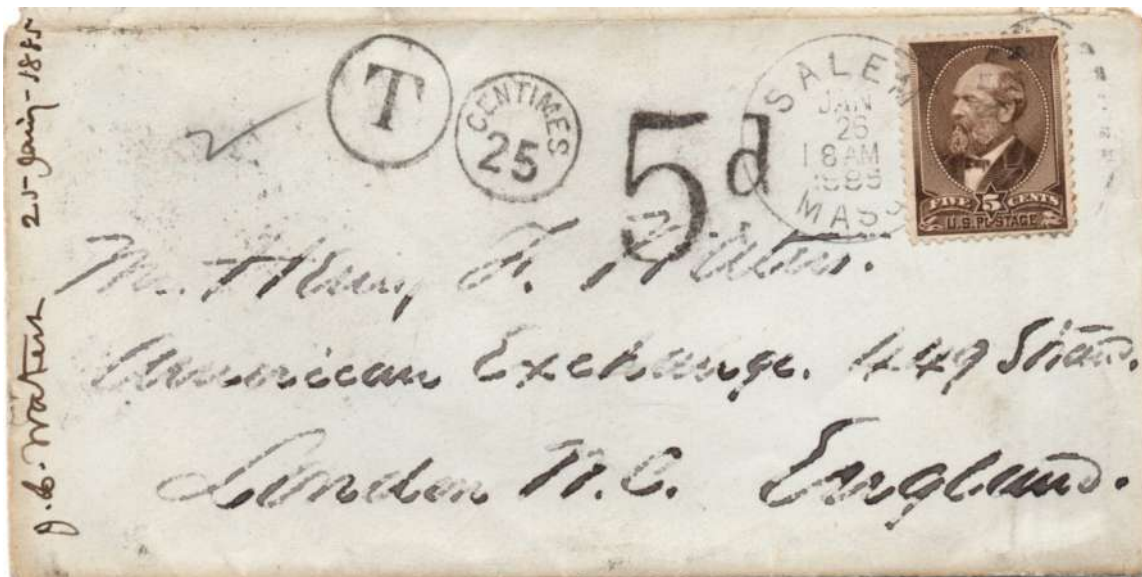 J. C. Waters 25 Jany - 1885
T
CENTIMES
25
5d
SALEM
JAN
26
18 AM
1885
MASS
FIVE 5 CENTS
U.S. POSTAGE
Mr. Henry F. Waters.
American Exchange. 449 Strand.
London W.C. England.